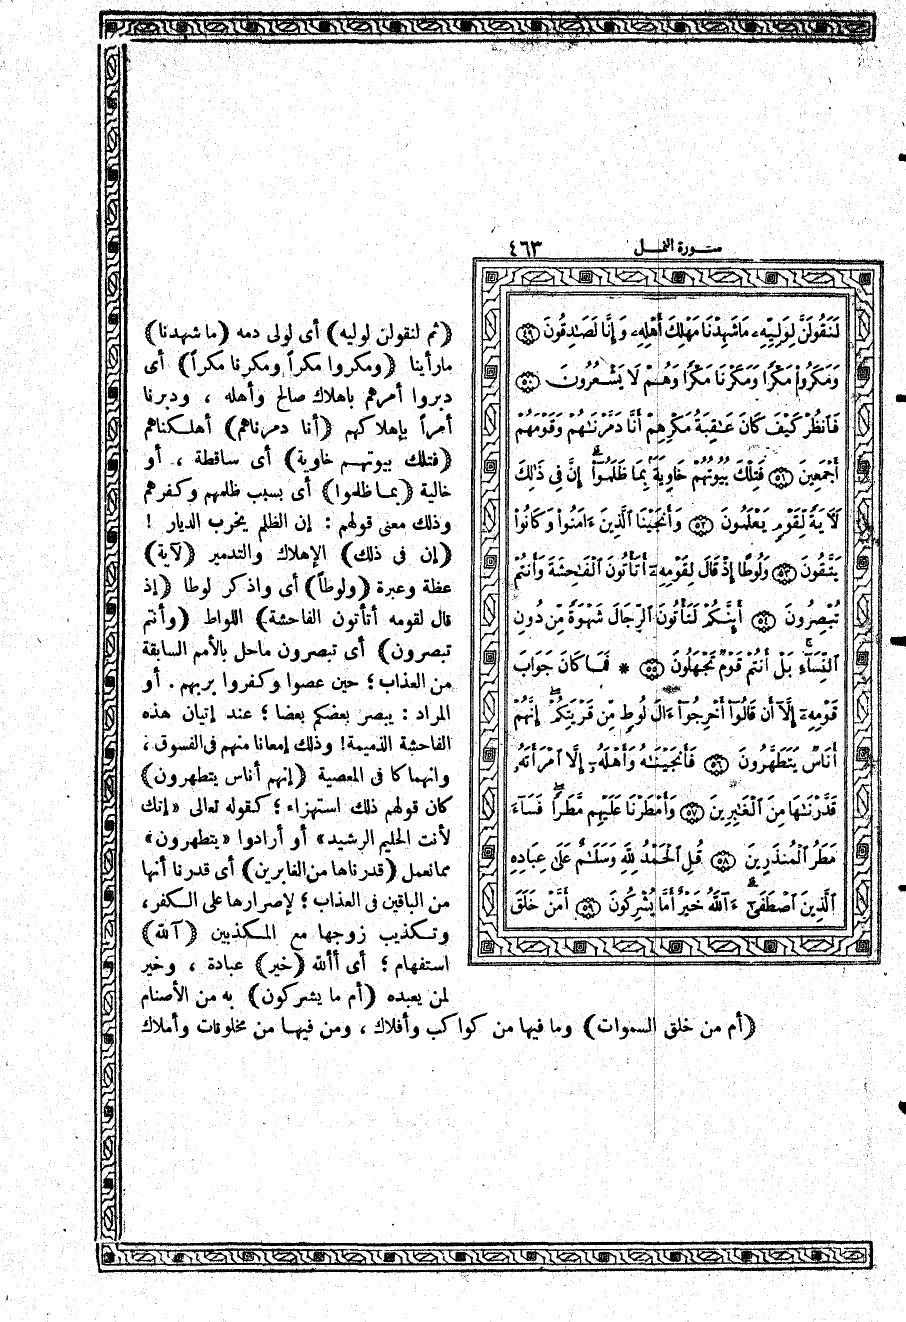 سورة النمل ٤٦٣
لَنَقُولَنَّ لِوَلِيِّهِۦ مَا شَهِدْنَا مَهْلِكَ أَهْلِهِۦ وَإِنَّا لَصَٰدِقُونَ ٤٩
وَمَكَرُوا۟ مَكْرًا وَمَكَرْنَا مَكْرًا وَهُمْ لَا يَشْعُرُونَ ٥٠
فَٱنظُرْ كَيْفَ كَانَ عَٰقِبَةُ مَكْرِهِمْ أَنَّا دَمَّرْنَٰهُمْ وَقَوْمَهُمْ
أَجْمَعِينَ ٥١ فَتِلْكَ بُيُوتُهُمْ خَاوِيَةًۢ بِمَا ظَلَمُوٓا۟ۗ إِنَّ فِى ذَٰلِكَ
لَءَايَةً لِّقَوْمٍ يَعْلَمُونَ ٥٢ وَأَنجَيْنَا ٱلَّذِينَ ءَامَنُوا۟ وَكَانُوا۟
يَتَّقُونَ ٥٣ وَلُوطًا إِذْ قَالَ لِقَوْمِهِۦٓ أَتَأْتُونَ ٱلْفَٰحِشَةَ وَأَنتُمْ
تُبْصِرُونَ ٥٤ أَئِنَّكُمْ لَتَأْتُونَ ٱلرِّجَالَ شَهْوَةً مِّن دُونِ
ٱلنِّسَآءِۚ بَلْ أَنتُمْ قَوْمٌ تَجْهَلُونَ ٥٥ * فَمَا كَانَ جَوَابَ
قَوْمِهِۦٓ إِلَّآ أَن قَالُوٓا۟ أَخْرِجُوٓا۟ ءَالَ لُوطٍ مِّن قَرْيَتِكُمْۖ إِنَّهُمْ
أُنَاسٌ يَتَطَهَّرُونَ ٥٦ فَأَنجَيْنَٰهُ وَأَهْلَهُۥٓ إِلَّا ٱمْرَأَتَهُۥ
قَدَّرْنَٰهَا مِنَ ٱلْغَٰبِرِينَ ٥٧ وَأَمْطَرْنَا عَلَيْهِم مَّطَرًاۖ فَسَآءَ
مَطَرُ ٱلْمُنذَرِينَ ٥٨ قُلِ ٱلْحَمْدُ لِلَّهِ وَسَلَٰمٌ عَلَىٰ عِبَادِهِ
ٱلَّذِينَ ٱصْطَفَىٰٓۗ ءَآللَّهُ خَيْرٌ أَمَّا يُشْرِكُونَ ٥٩ أَمَّنْ خَلَقَ
(ثم لنقولن لوليه) أى لولى دمه (ما شهدنا)
مارأينا (ومكروا مكراً ومكرنا مكراً) أى
دبروا أمرهم بإهلاك صالح وأهله ، ودبرنا
أمراً بإهلاكهم (أنا دمرناهم) أهلكناهم
(فتلك بيوتهم خاوية) أى ساقطة ، أو
خالية (بما ظلموا) أى بسبب ظلمهم وكفرهم
وذلك معنى قولهم : إن الظلم يخرب الديار !
(إن فى ذلك) الإهلاك والتدمير (لآية)
عظة وعبرة (ولوطاً) أى واذكر لوطا (إذ
قال لقومه أتأتون الفاحشة) اللواط (وأنتم
تبصرون) أى تبصرون ماحل بالأمم السابقة
من العذاب ؛ حين عصوا وكفروا بربهم . أو
المراد : يبصر بعضكم بعضا ؛ عند إتيان هذه
الفاحشة الذميمة! وذلك إمعانا منهم فى الفسوق ،
وانهماكا فى المعصية (إنهم أناس يتطهرون)
كان قولهم ذلك استهزاء ؛ كقوله تعالى «إنك
لأنت الحليم الرشيد» أو أرادوا «يتطهرون»
ممانعمل (قدرناها من الغابرين) أى قدرنا أنها
من الباقين فى العذاب ؛ لإصرارها على الكفر ،
وتكذيب زوجها مع المكذبين (آلله)
استفهام ؛ أى أألله (خير) عبادة ، وخير
لمن يعبده (أم ما يشركون) به من الأصنام
(أم من خلق السموات) وما فيها من كواكب وأفلاك ، ومن فيها من مخلوقات وأملاك